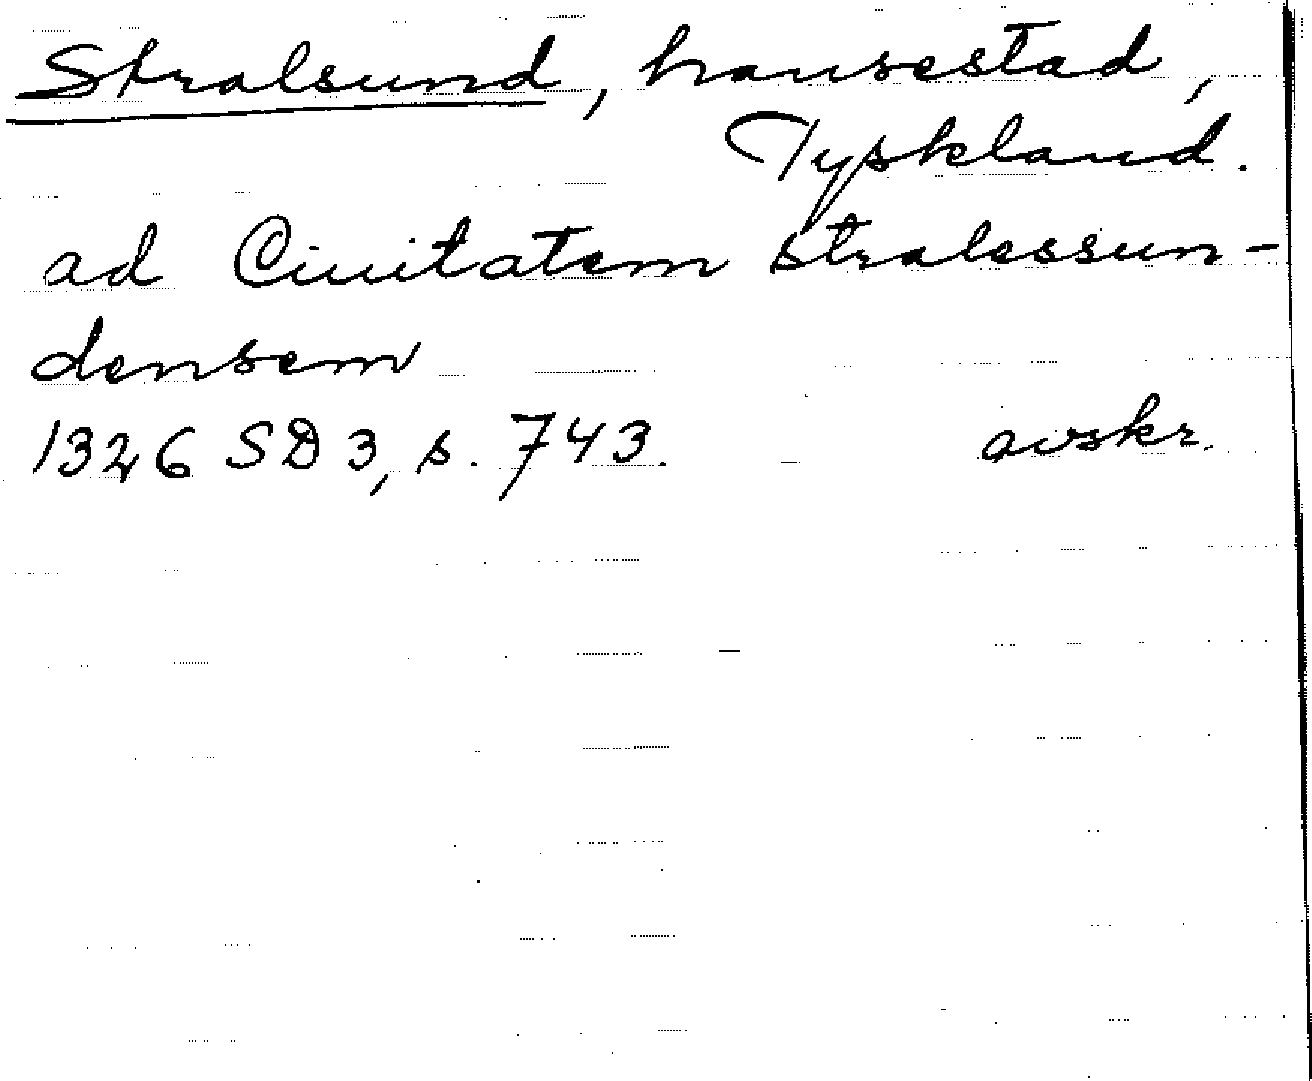 Stralsund, hansestad,
Tyskland.
ad Ciuitatem stralessun-
densem
1326 SD 3, s. 743. avskr.